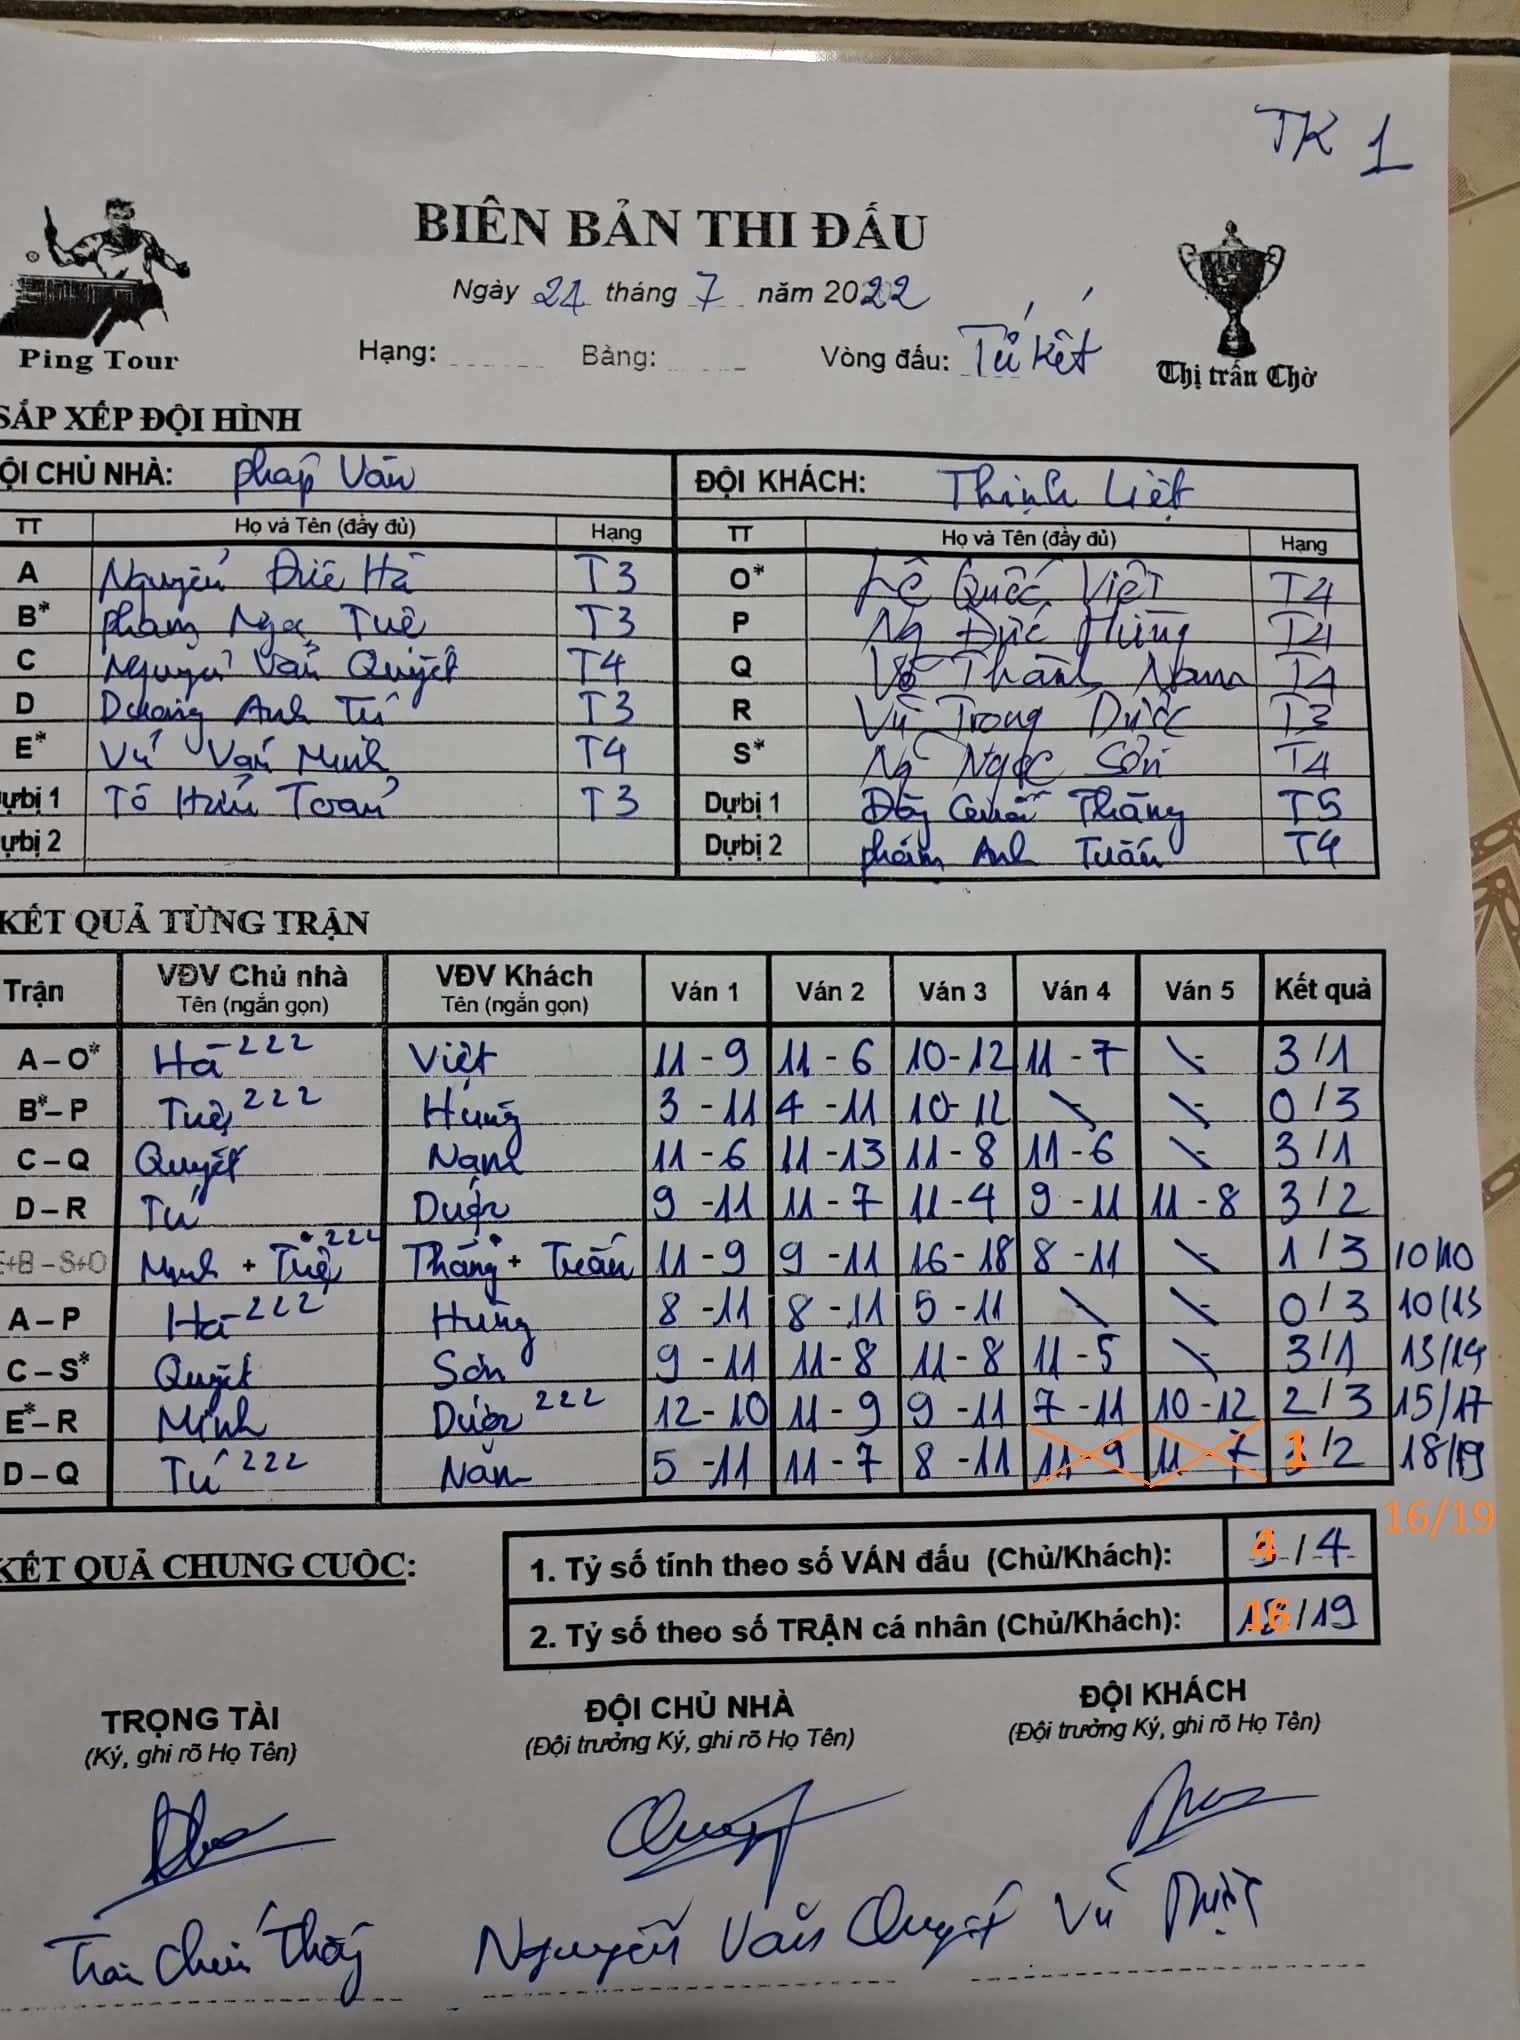 TK 1
BIÊN BẢN THI ĐẤU
Ngày 24 tháng 7 năm 2022
Ping Tour
Hạng: Bảng: Vòng đấu: Tứ kết
Thị trấn Chờ
SẮP XẾP ĐỘI HÌNH
ỘI CHỦ NHÀ: Pháp Vân ĐỘI KHÁCH: Thịnh Liệt
TT Họ và Tên (đầy đủ) Hạng TT Họ và Tên (đầy đủ) Hạng
A Nguyễn Đức Hà T3 O* Lê Quốc Việt T4
B* Phạm Ngọc Tuệ T3 P Ng Đức Hùng T4
C Nguyễn Văn Quyết T4 Q Võ Thành Nam T4
D Dương Anh Tú T3 R Vũ Trọng Được T3
E* Vũ Văn Minh T4 S* Ng Ngọc Sơn T4
Dựbị 1 Tô Hữu Toán T3 Dựbị 1 Thắng T5
ựbị 2 Dựbị 2 Phạm Anh Tuấn T4
KẾT QUẢ TỪNG TRẬN
Trận VĐV Chủ nhà VĐV Khách Ván 1 Ván 2 Ván 3 Ván 4 Ván 5 Kết quả
Tên (ngắn gọn) Tên (ngắn gọn)
A – O* Hà 222 Việt 11 - 9 11 - 6 10 - 12 11 - 7 3 / 1
B* – P Tuệ 222 Hùng 3 - 11 4 - 11 10 - 12 0 / 3
C – Q Quyết Nam 11 - 6 11 - 13 11 - 8 11 - 6 3 / 1
D – R Tú Được 9 - 11 11 - 7 11 - 4 9 - 11 11 - 8 3 / 2
E+B – S+O Minh + Tuệ 222 Thắng + Tuấn 11 - 9 9 - 11 16 - 18 8 - 11 1 / 3 10/10
A – P Hà 222 Hùng 8 - 11 8 - 11 5 - 11 0 / 3 10/13
C – S* Quyết Sơn 9 - 11 11 - 8 11 - 8 11 - 5 3 / 1 13/14
E* – R Minh Được 222 12 - 10 11 - 9 9 - 11 7 - 11 10 - 12 2 / 3 15/17
D – Q Tú 222 Nam 5 - 11 11 - 7 8 - 11 11 - 9 11 - 7 1 / 2 18/19
16/19
KẾT QUẢ CHUNG CUỘC:
1. Tỷ số tính theo số VÁN đấu (Chủ/Khách): 4 / 4
2. Tỷ số theo số TRẬN cá nhân (Chủ/Khách): 16 / 19
TRỌNG TÀI ĐỘI CHỦ NHÀ ĐỘI KHÁCH
(Ký, ghi rõ Họ Tên) (Đội trưởng Ký, ghi rõ Họ Tên) (Đội trưởng Ký, ghi rõ Họ Tên)
Nguyễn Văn Quyết Vũ